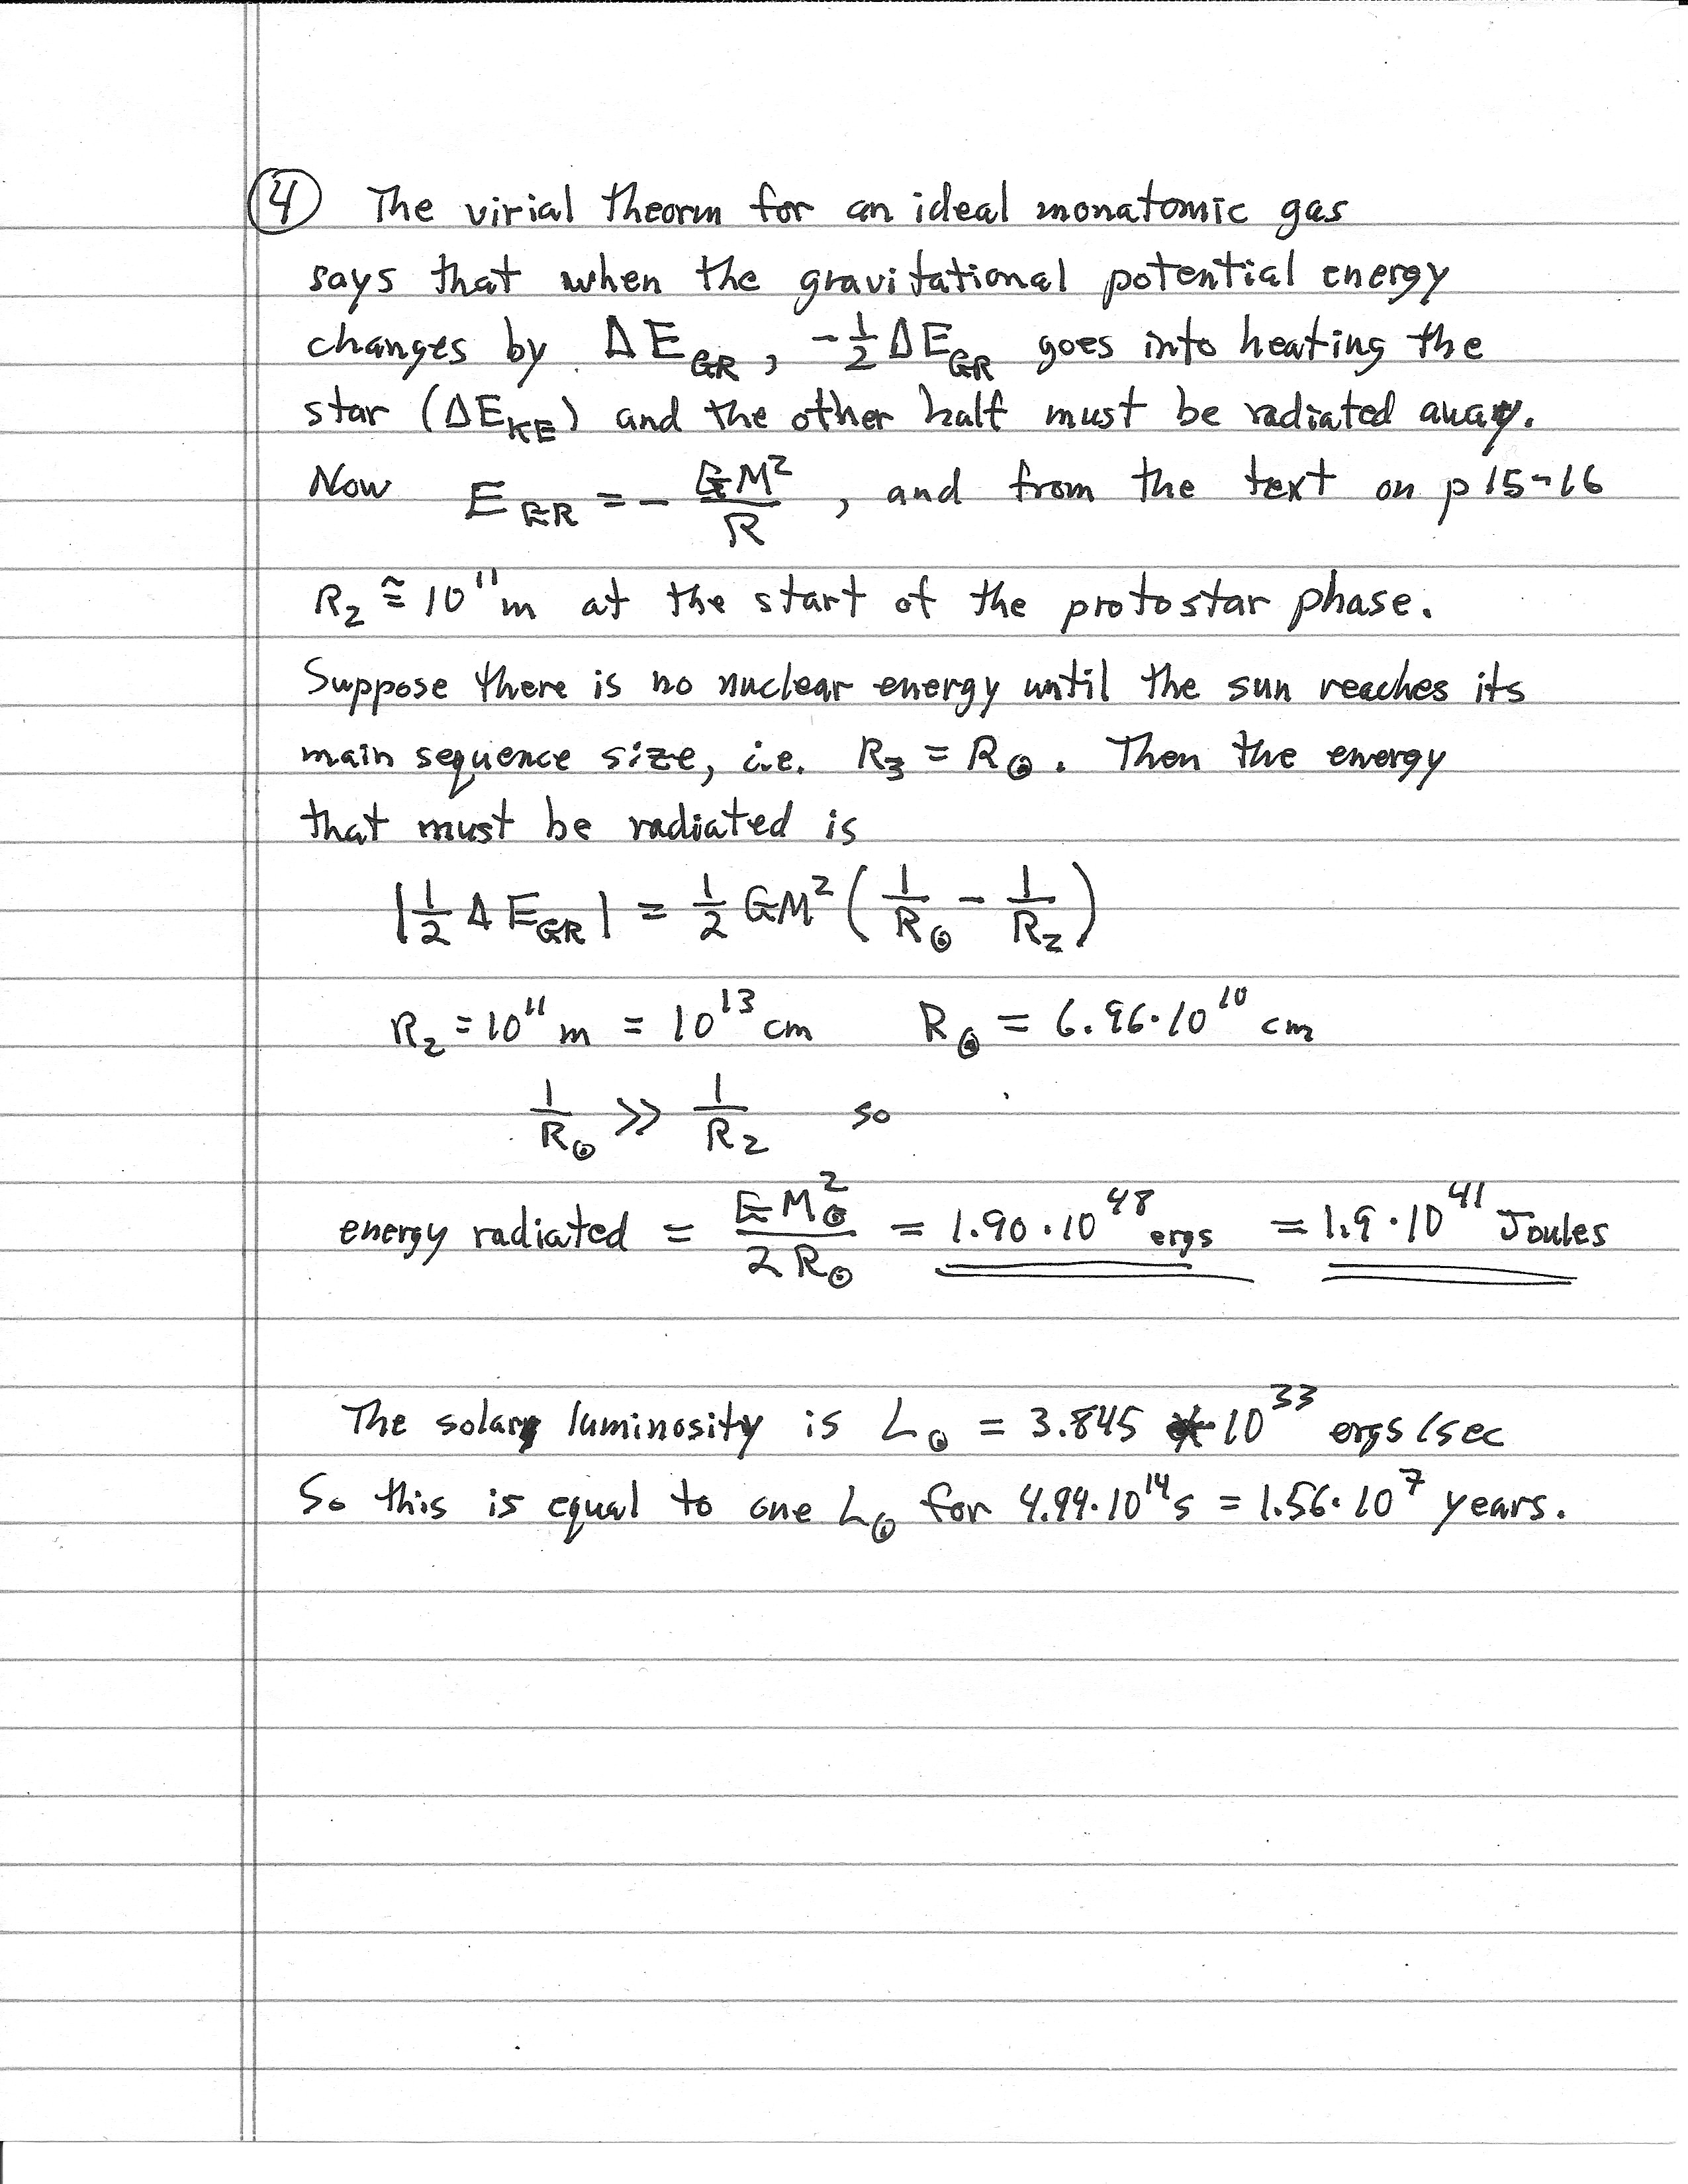 ④ The virial theorm for an ideal monatomic gas
says that when the gravitational potential energy
changes by ΔE_GR, -½ΔE_GR goes into heating the
star (ΔE_KE) and the other half must be radiated away.
Now E_GR = - GM²/R , and from the text on p 15-16
R₂ ≅ 10¹¹ m at the start of the protostar phase.
Suppose there is no nuclear energy until the sun reaches its
main sequence size, i.e. R₃ = R⊙. Then the energy
that must be radiated is
|½ Δ E_GR| = ½ GM² (1/R⊙ - 1/R₂)
R₂ = 10¹¹ m = 10¹³ cm R⊙ = 6.96·10¹⁰ cm
1/R⊙ >> 1/R₂ so
energy radiated = GM⊙²/2R⊙ = 1.90·10⁴⁸ ergs = 1.9·10⁴¹ Joules
The solar luminosity is L⊙ = 3.845 * 10³³ ergs/sec
So this is equal to one L⊙ for 4.94·10¹⁴ s = 1.56·10⁷ years.